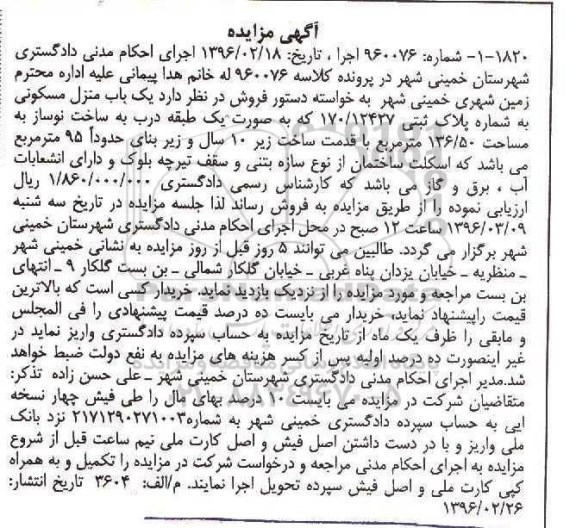 آگهی مزایده
۱۸۲۰-۱- شماره: ۹۶۰۰۷۶ اجرا ، تاریخ: ۱۳۹۶/۰۲/۱۸ اجرای احکام مدنی دادگستری
شهرستان خمینی شهر در پرونده کلاسه ۹۶۰۰۷۶ له خانم هدا پیمانی علیه اداره محترم
زمین شهری خمینی شهر به خواسته دستور فروش در نظر دارد یک باب منزل مسکونی
به شماره پلاک ثبتی ۱۷۰/۱۲۴۳۷ که به صورت یک طبقه درب به ساخت نوساز به
مساحت ۱۳۶/۵۰ مترمربع با قدمت ساخت زیر ۱۰ سال و زیر بنای حدوداً ۹۵ مترمربع
می باشد که اسکلت ساختمان از نوع سازه بتنی و سقف تیرچه بلوک و دارای انشعابات
آب ، برق و گاز می باشد که کارشناس رسمی دادگستری ۱/۸۶۰/۰۰۰/۰۰۰ ریال
ارزیابی نموده را از طریق مزایده به فروش رساند لذا جلسه مزایده در تاریخ سه شنبه
۱۳۹۶/۰۳/۰۹ ساعت ۱۲ صبح در محل اجرای احکام مدنی دادگستری شهرستان خمینی
شهر برگزار می گردد. طالبین می توانند ۵ روز قبل از روز مزایده به نشانی خمینی شهر
ـ منظریه ـ خیابان یزدان پناه غربی ـ خیابان گلکار شمالی ـ بن بست گلکار ۹ ـ انتهای
بن بست مراجعه و مورد مزایده را از نزدیک بازدید نماید. خریدار کسی است که بالاترین
قیمت راپیشنهاد نماید، خریدار می بایست ده درصد قیمت پیشنهادی را فی المجلس
و مابقی را ظرف یک ماه از تاریخ مزایده به حساب سپرده دادگستری واریز نماید در
غیر اینصورت ده درصد اولیه پس از کسر هزینه های مزایده به نفع دولت ضبط خواهد
شد.مدیر اجرای احکام مدنی دادگستری شهرستان خمینی شهر ـ علی حسن زاده تذکر:
متقاضیان شرکت در مزایده می بایست ۱۰ درصد بهای مال را طی فیش چهار نسخه
ایی به حساب سپرده دادگستری خمینی شهر به شماره۲۱۷۱۲۹۰۲۷۱۰۰۳ نزد بانک
ملی واریز و با در دست داشتن اصل فیش و اصل کارت ملی نیم ساعت قبل از شروع
مزایده به اجرای احکام مدنی مراجعه و درخواست شرکت در مزایده را تکمیل و به همراه
کپی کارت ملی و اصل فیش سپرده تحویل اجرا نمایند. م/الف: ۳۶۰۴ تاریخ انتشار:
۱۳۹۶/۰۲/۲۶